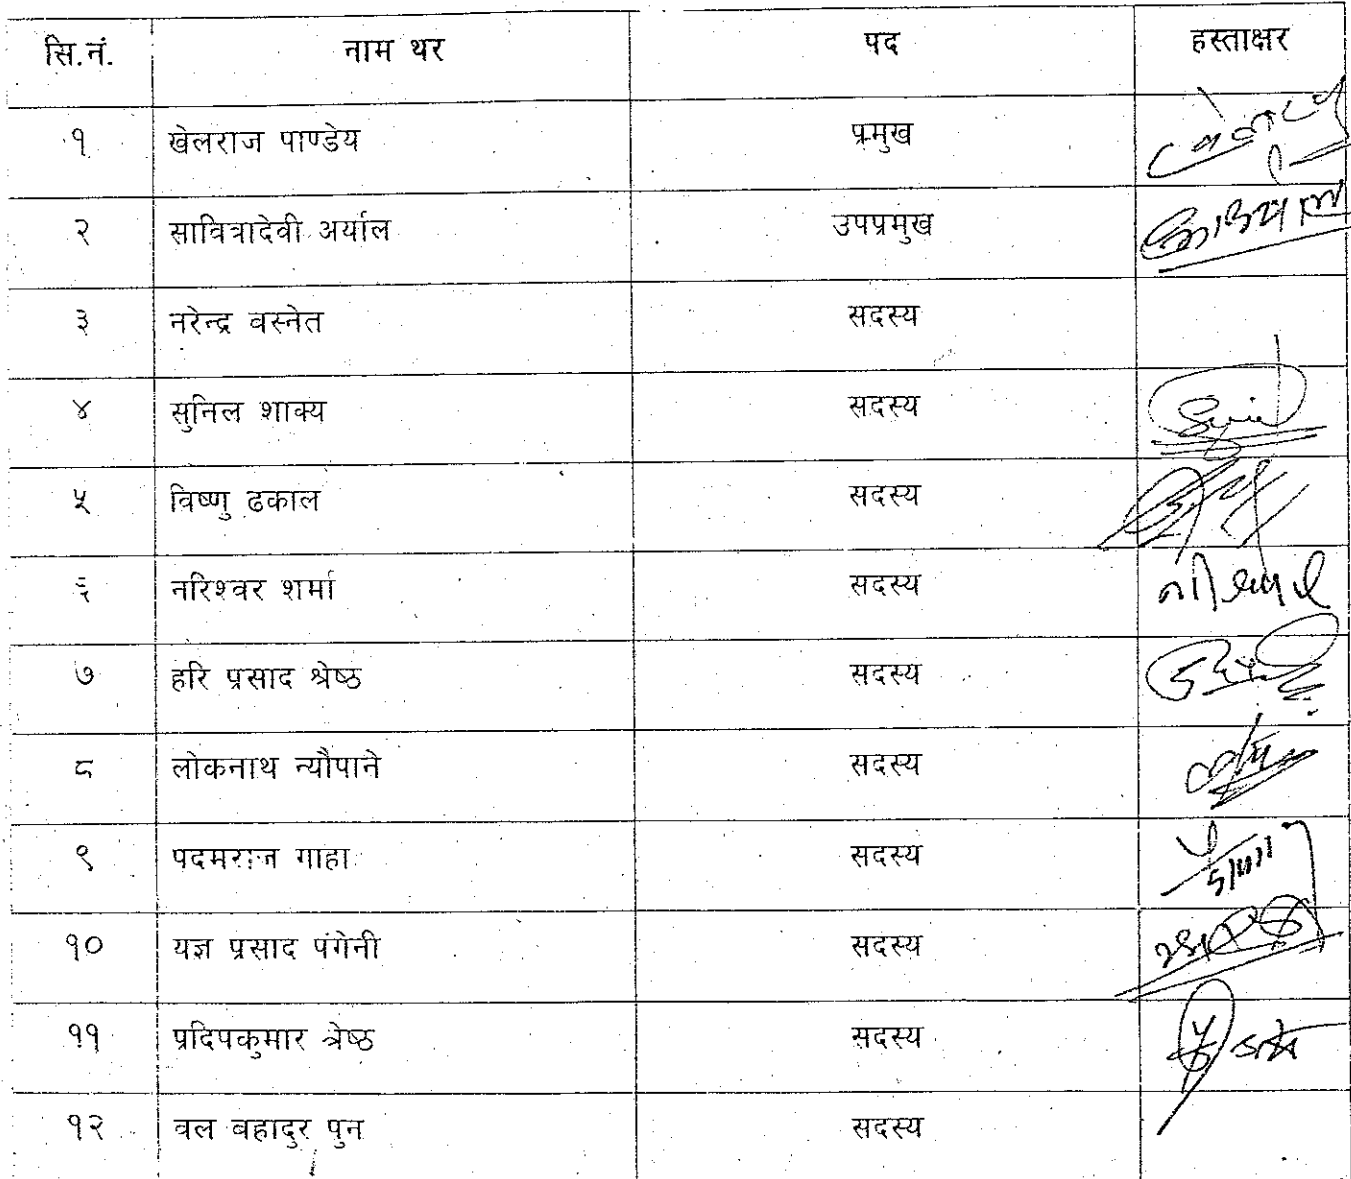 सि.नं. नाम थर पद हस्ताक्षर
१ खेलराज पाण्डेय प्रमुख
२ सावित्रादेवी अर्याल उपप्रमुख
३ नरेन्द्र वस्नेत सदस्य
४ सुनिल शाक्य सदस्य
५ विष्णु ढकाल सदस्य
६ नरिश्वर शर्मा सदस्य
७ हरि प्रसाद श्रेष्ठ सदस्य
८ लोकनाथ न्यौपाने सदस्य
९ पदमराज गाहा सदस्य
१० यज्ञ प्रसाद पंगेनी सदस्य
११ प्रदिपकुमार श्रेष्ठ सदस्य
१२ वल बहादुर पुन सदस्य